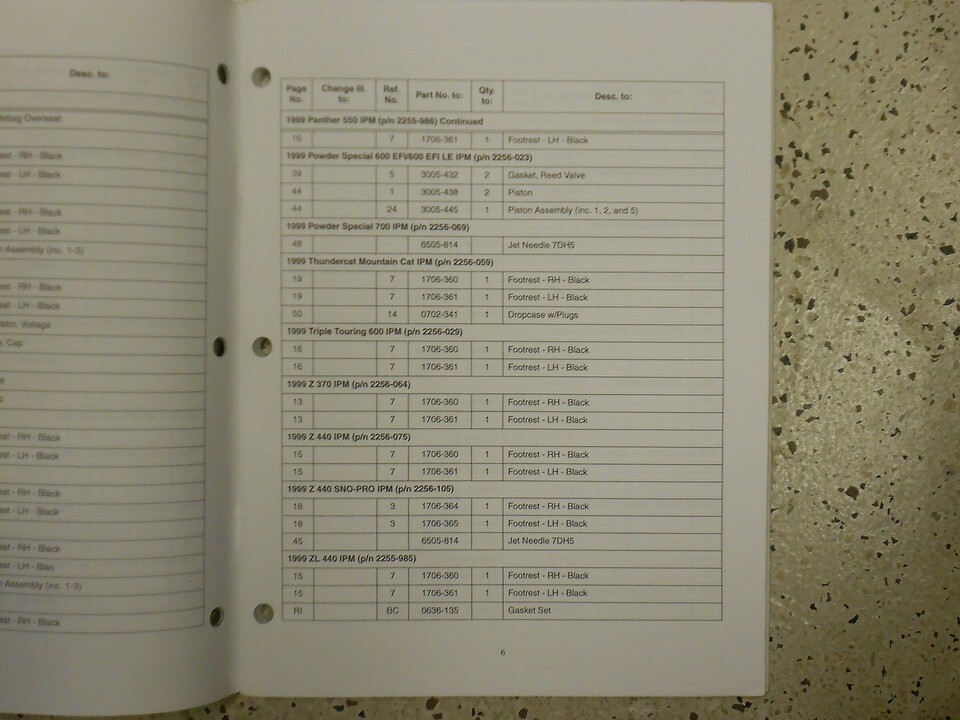 Desc. to:
Overseat
- RH - Black
- LH - Black
- RH - Black
- LH - Black
Assembly (inc. 1-3)
- RH - Black
- LH - Black
Voltage
Cap
- RH - Black
- LH - Black
- RH - Black
- LH - Black
- RH - Black
- LH - Blac
Assembly (inc. 1-3)
- RH - Black
Page No. Change Ill. to: Ref. No. Part No. to: Qty. to: Desc. to:
1999 Panther 550 IPM (p/n 2255-986) Continued
16 7 1706-361 1 Footrest - LH - Black
1999 Powder Special 600 EFI/600 EFI LE IPM (p/n 2256-023)
39 5 3005-432 2 Gasket, Reed Valve
44 1 3005-438 2 Piston
44 24 3005-445 1 Piston Assembly (inc. 1, 2, and 5)
1999 Powder Special 700 IPM (p/n 2256-069)
48 6505-814 Jet Needle 7DH5
1999 Thundercat Mountain Cat IPM (p/n 2256-059)
19 7 1706-360 1 Footrest - RH - Black
19 7 1706-361 1 Footrest - LH - Black
50 14 0702-341 1 Dropcase w/Plugs
1999 Triple Touring 600 IPM (p/n 2256-029)
16 7 1706-360 1 Footrest - RH - Black
16 7 1706-361 1 Footrest - LH - Black
1999 Z 370 IPM (p/n 2256-064)
13 7 1706-360 1 Footrest - RH - Black
13 7 1706-361 1 Footrest - LH - Black
1999 Z 440 IPM (p/n 2256-075)
15 7 1706-360 1 Footrest - RH - Black
15 7 1706-361 1 Footrest - LH - Black
1999 Z 440 SNO-PRO IPM (p/n 2256-105)
18 3 1706-364 1 Footrest - RH - Black
18 3 1706-365 1 Footrest - LH - Black
45 6505-814 Jet Needle 7DH5
1999 ZL 440 IPM (p/n 2255-985)
15 7 1706-360 1 Footrest - RH - Black
15 7 1706-361 1 Footrest - LH - Black
RI BC 0636-135 Gasket Set
6